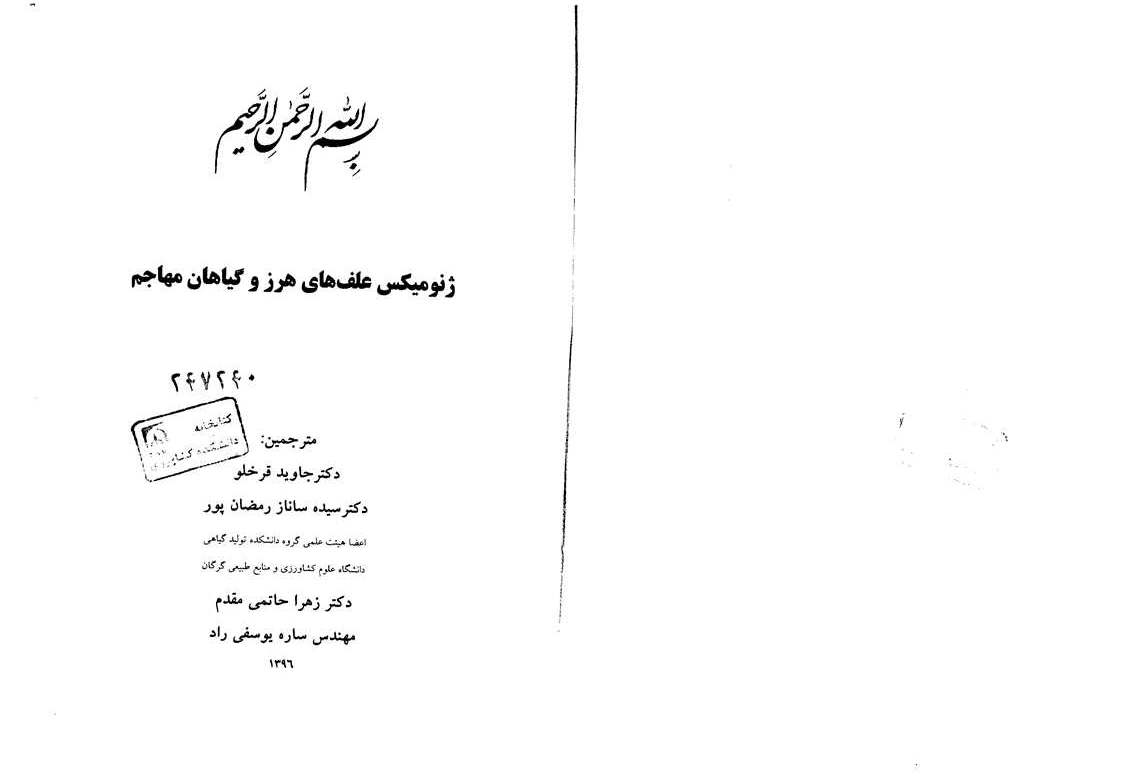 بسم الله الرحمن الرحیم
ژنومیکس علف‌های هرز و گیاهان مهاجم
۲۴۷۲۴۰
کتابخانه
دانشکده کشاورزی
مترجمین:
دکترجاوید قرخلو
دکترسیده ساناز رمضان پور
اعضا هیئت علمی گروه دانشکده تولید گیاهی
دانشگاه علوم کشاورزی و منابع طبیعی گرگان
دکتر زهرا حاتمی مقدم
مهندس ساره یوسفی راد
۱۳۹۶